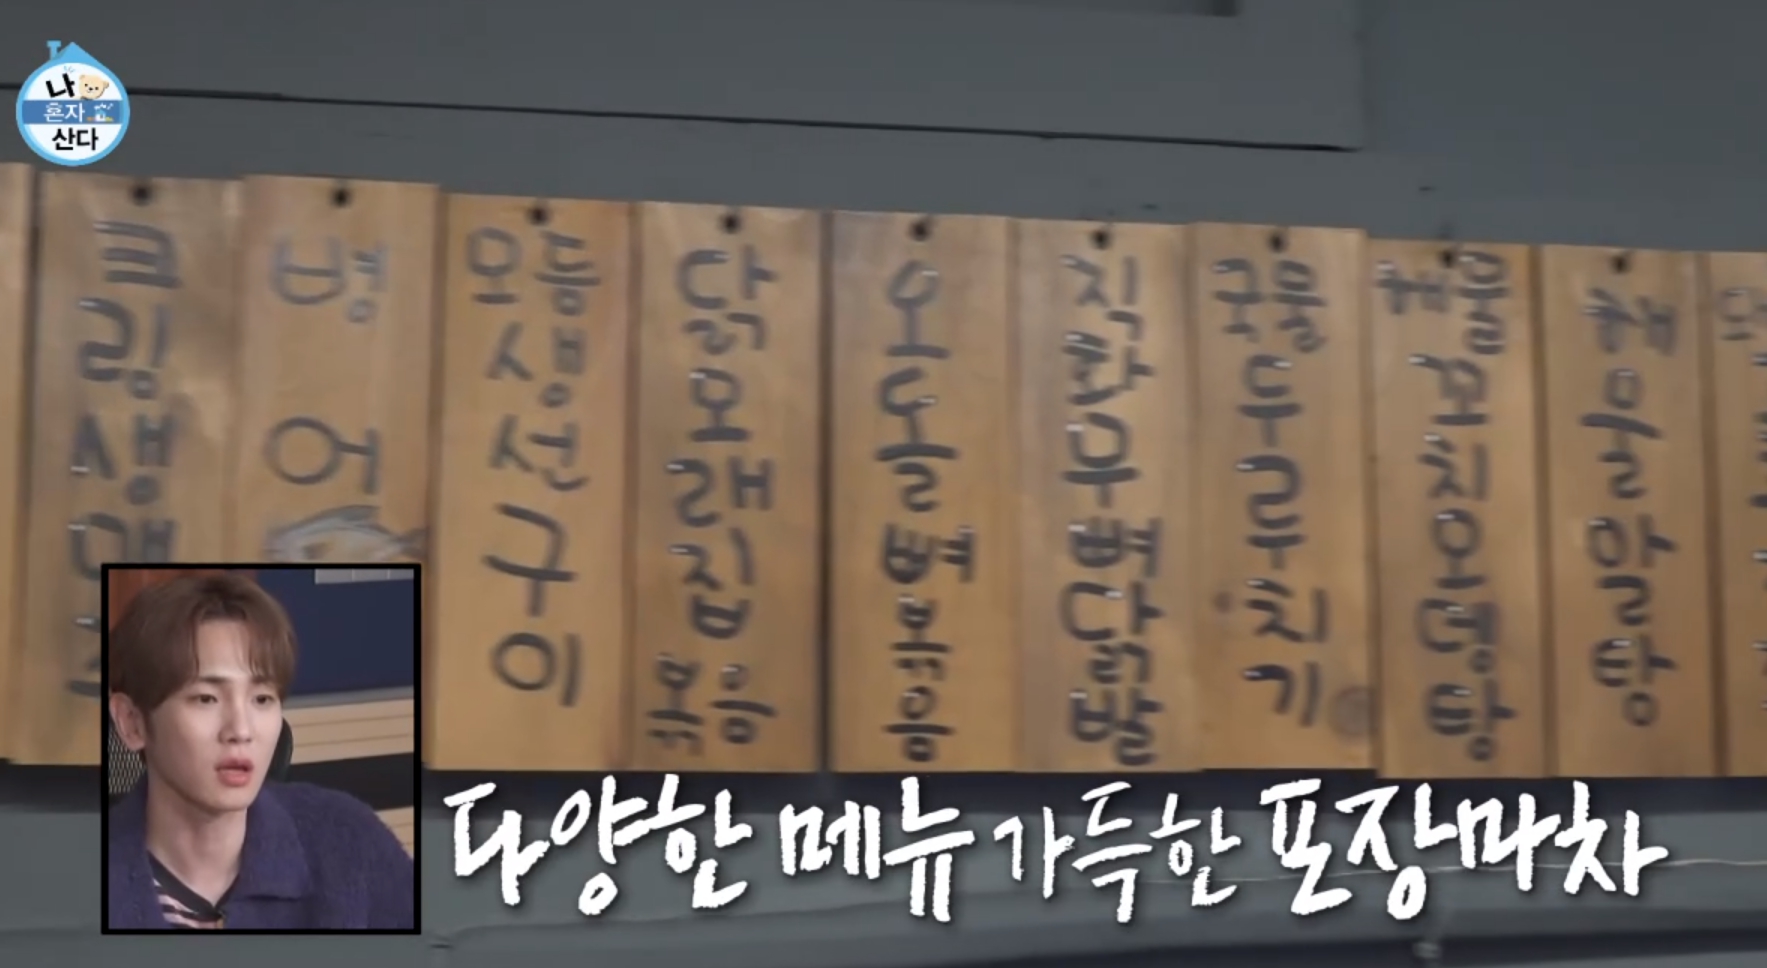 나
혼자
산다
크링생맥
병어
모듬생선구이
닭모래집볶음
오돌뼈볶음
직화무뼈닭발
국물두루치기
해물꼬치오뎅탕
해물알탕
다양한 메뉴 가득한 포장마차